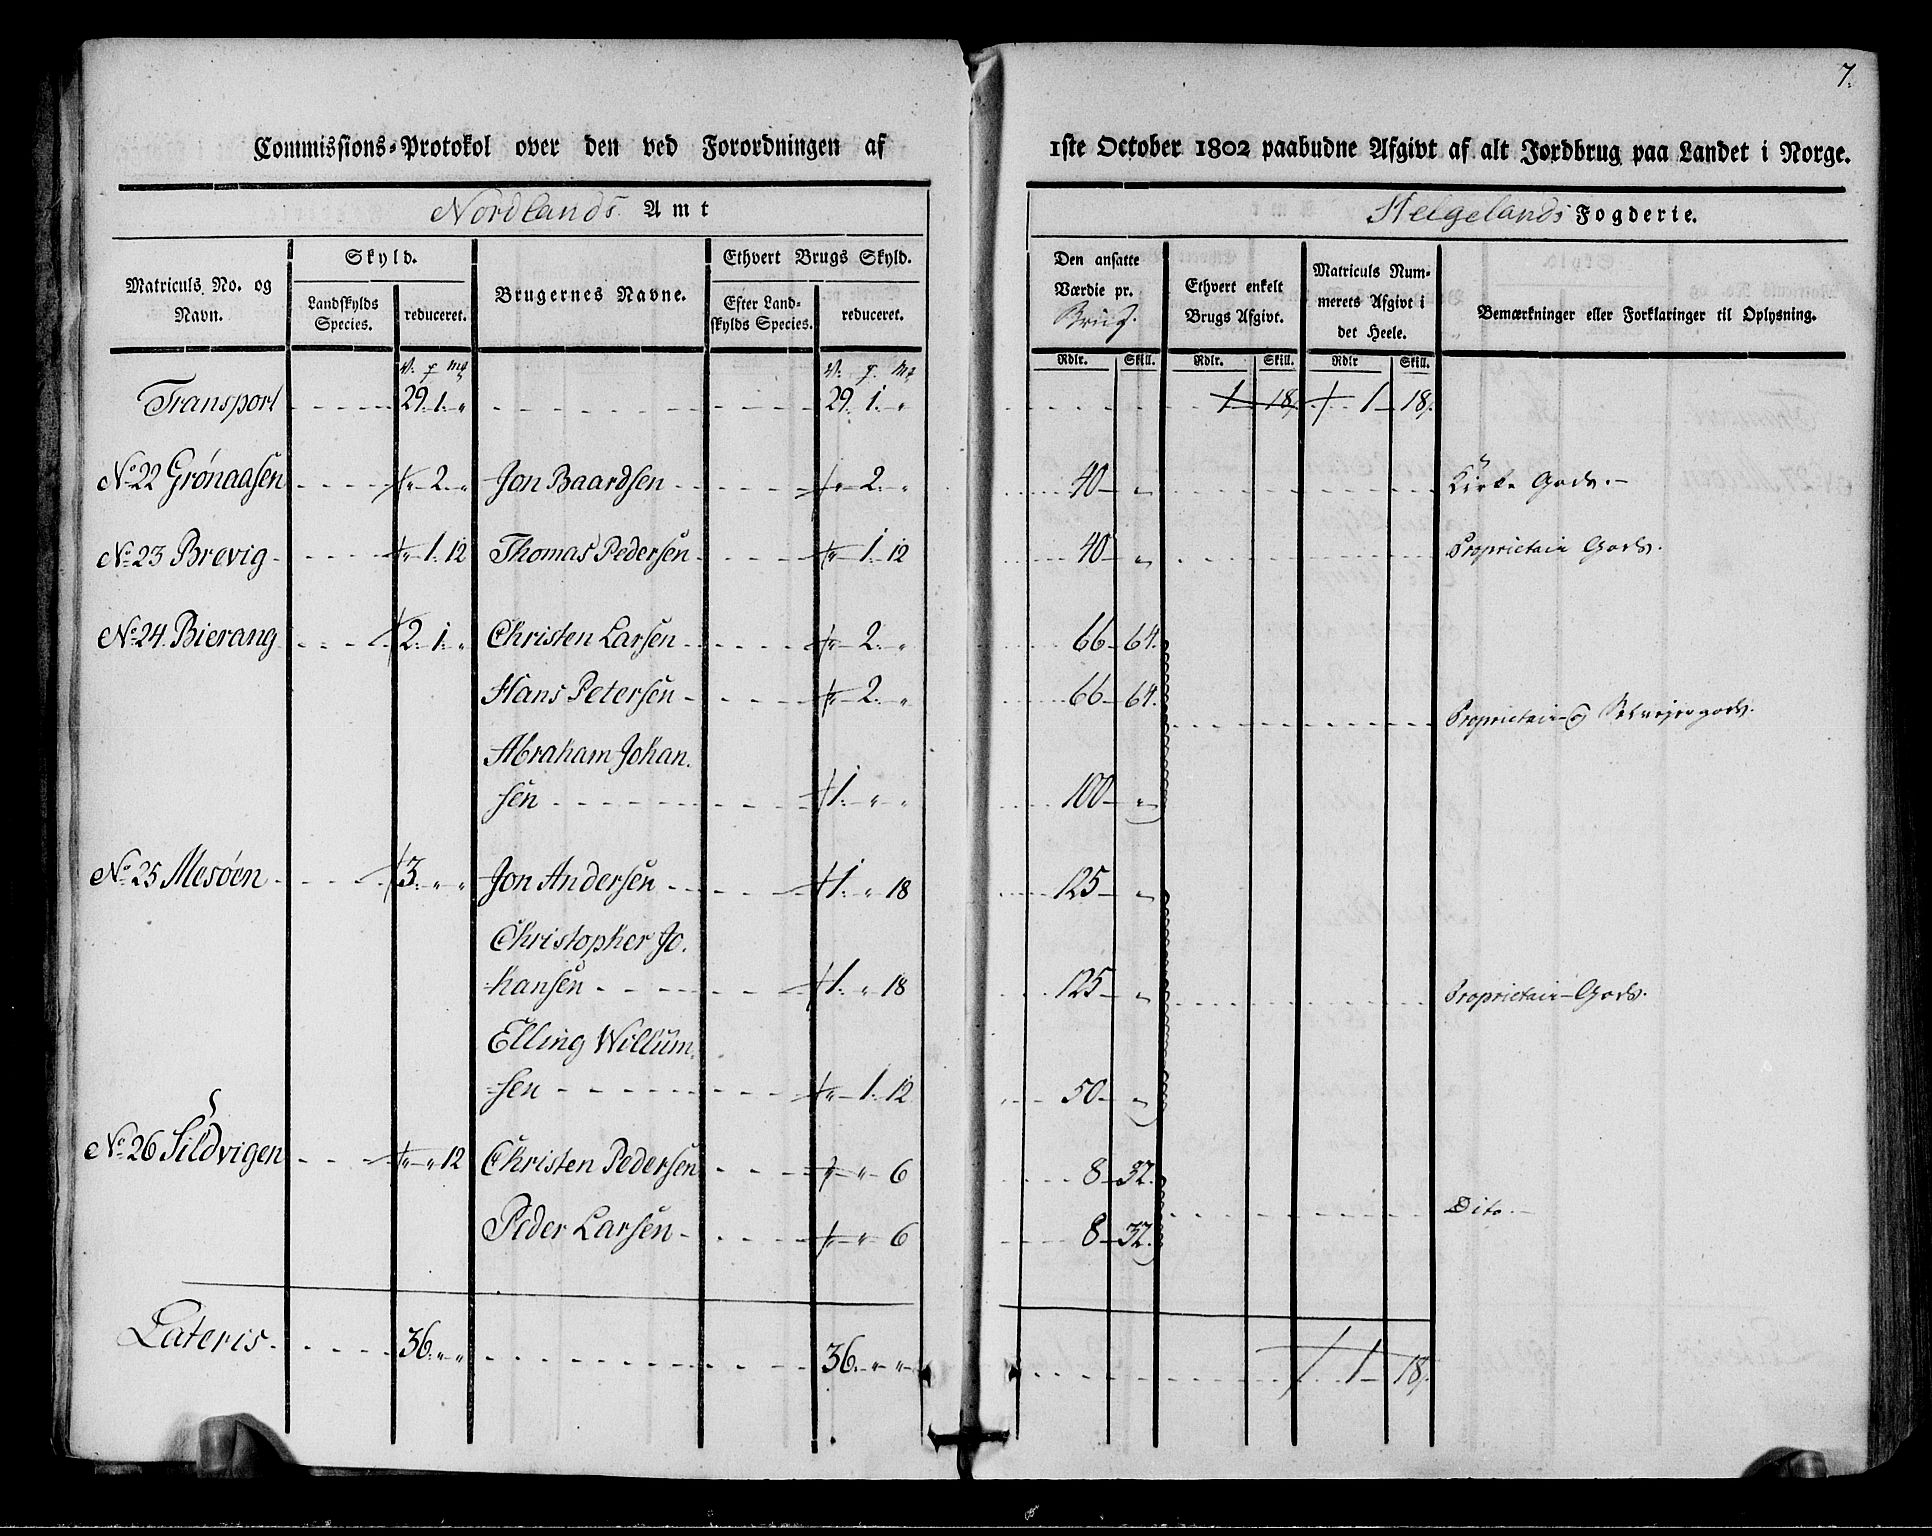 7.
Commissions-Protokol over den ved Forordningen af 1ste October 1802 paabudne Afgivt af alt Jordbrug paa Landet i Norge.
Nordlands Amt
Helgelands Fogderie.
Matriculs No. og Navn.
Skyld.
Landskylds Species.
reduceret.
Brugernes Navne.
Ethvert Brugs Skyld.
Efter Landskylds Species.
reduceret.
Den ansatte Værdie pr. Brug.
Ethvert enkelt Brugs Afgivt.
Matriculs Nummerets Afgivt i det Heele.
Bemærkninger eller Forklaringer til Oplysning.
Rdlr. Skill. Rdlr. Skill. Rdlr Skill.
Transport 29. 1. „ 29. 1. „ 1 18. 1 18.
No. 22 Grønaasen „ 2. „ Jon Baardsen „ 2. „ 40 „ Kirke Gods.
No. 23 Brevig „ 1. 12 Thomas Pedersen „ 1. 12 40 „ Proprietair Gods.
No. 24. Bierang 2. 1. „ Christen Larsen „ 2. „ 66 64.
Hans Petersen „ 2. „ 66 64. Proprietair og Selveiergods.
Abraham Johan
sen 1. „ „ 100 „
No. 25 Mesøen 3. „ „ Jon Andersen 1. „ 18 125 „
Christopher Jo
hansen 1. „ 18 125 „ Proprietair Gods.
Elling Willum
sen „ 1. 12 50 „
No. 26 Sildvigen „ „ 12 Christen Pedersen „ „ 6 8 32.
Dito.
Peder Larsen „ „ 6 8 32.
Lateris 36. „ „ 36. „ „ 1 18.